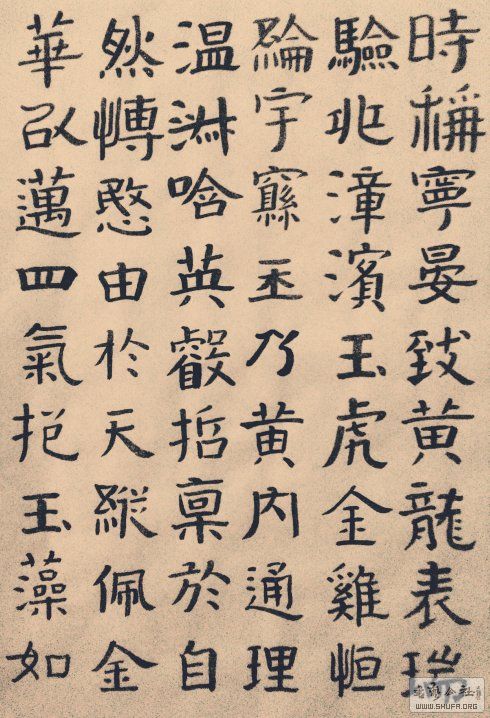 時稱寧晏致黃龍表瑞
驗兆漳濱玉虎金雞恒
綸宇丕乃黃内通理
温淋唅英叡哲稟於自
然慱愍由於天縱佩金
華以邁四氣挹玉藻如
WWW.SHUFA.ORG